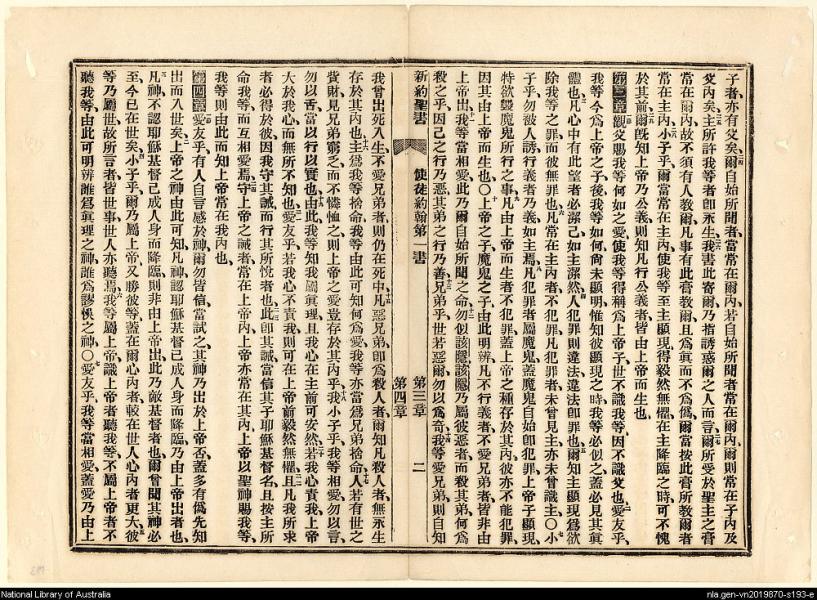 子者、亦有父矣、爾自始所聞者、當常在爾內、若自始所聞者、常在爾內、爾則常在子內及
父內矣、主所許我等者、卽永生、我書此寄爾、乃指誘惑爾之人而言、爾所受於聖主之膏
常在爾內、故不須有人教爾、凡事有此膏教爾、且爲眞而不爲僞、爾當按此膏所教爾者
常在主內、小子乎、爾當常在主內、使我等至主顯現、得毅然無懼、在主降臨之時、可不愧
於其前、爾旣知上帝乃公義、則知凡行公義者、皆由上帝而生也、
第三章 觀父賜我等何如之愛、使我等得稱爲上帝子、世不識我等、因不識父也、愛友乎、
我等今爲上帝之子、後我等如何、尙未顯明、惟知彼顯現之時、我等必似之、蓋必見其眞
體也、凡心中有此望者、必潔己、如主潔然、人犯罪則違法、違法卽罪也、爾知主顯現、爲欲
除我等之罪、而彼無罪也、凡常在主內者、不犯罪、凡犯罪者、未曾見主、亦未曾識主、○小
子乎、勿被人誘、行義者乃義、如主焉、凡犯罪者、屬魔鬼、蓋魔鬼自始卽犯罪、上帝子顯現、
特欲毀魔鬼所行之事、凡由上帝而生者、不犯罪、蓋上帝之種、存於其內、彼亦不能犯罪、
因其由上帝而生也、○上帝之子、魔鬼之子、由此明辨、凡不行義者、不愛兄弟者、皆非由
上帝出、我等當相愛、此乃爾自始所聞之命、勿似該隱、該隱乃屬彼惡者、而殺其弟、何爲
殺之乎、因己之行乃惡、其弟之行乃善、兄弟乎、世若惡爾、勿以爲奇、我等愛兄弟、則自知
新約聖書 使徒約翰第一書 第三章 第四章 二
我曾出死入生、不愛兄弟者、則仍在死中、凡惡兄弟、卽爲殺人者、爾知凡殺人者、無永生
存於其內也、主爲我等捨命、我等由此可知何爲愛、我等亦當爲兄弟捨命、人若有世之
貲財、見兄弟窮乏、而不憐恤之、則上帝之愛、豈存於其內乎、我小子乎、我等相愛、勿以言、
勿以舌、當以行以實也、由此、我等知我屬眞理、且我心在主前可安然、若我心責我、上帝
大於我心、而無所不知也、愛友乎、若我心不責我、則可在上帝前毅然無懼、且凡我所求
者、必得於彼、因我守其誡、而行其所悅者也、此卽其誡、當信其子耶穌基督名、且按主所
命我等、而互相愛焉、守上帝之誡者、常在上帝內、上帝亦常在其內、上帝以聖神賜我等、
我等則由此而知上帝常在我內也、
第四章 愛友乎、有人自言感於神、爾勿皆信、當試之、其神乃出於上帝否、蓋多有僞先知
出而入世矣、上帝之神、由此可知、凡神認耶穌基督已成人身而降臨、乃由上帝出者也、
凡神不認耶穌基督已成人身而降臨、則非由上帝出、此乃敵基督者也、爾曾聞其神必
至、今已在世矣、小子乎、爾乃屬上帝、又勝彼等、蓋在爾心內者、較在世人心內者更大、彼
等乃屬世、故所言者皆世事、世人亦聽焉、我等屬上帝、識上帝者、聽我等、不屬上帝者、不
聽我等、由此可明辨誰爲眞理之神、誰爲謬悞之神、○愛友乎、我等當相愛、蓋愛乃由上
National Library of Australia
nla.gen-vn2019870-s193-e